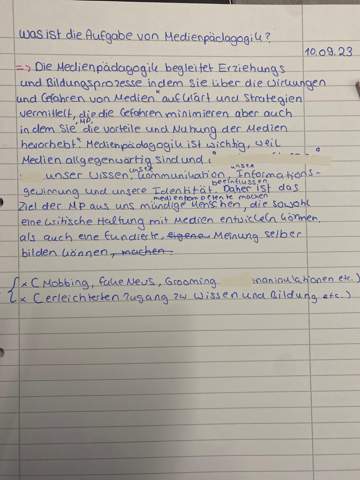 Was ist die Aufgabe von Medienpädagogik?
10.09.23
=> Die Medienpädagogik begleitet Erziehungs
und Bildungsprozesse indem sie über die Wirkungen
und Gefahren von Medien* aufklärt und Strategien
vermittelt, die die Gefahren minimieren aber auch
indem sie, MP, die Vorteile und Nutzung der Medien
hervorhebt. Medienpädagogik ist wichtig, weil
Medien allgegenwärtig sind und
unser Wissen, unsere Kommunikation, unsere Informations-
gewinnung und unsere Identität beeinflussen. Daher ist das
Ziel der MP aus uns medienkompetente mündige Menschen machen, die sowohl
eine kritische Haltung mit Medien entwickeln können,
als auch eine fundierte, eigene Meinung selber
bilden können, machen.
{ * ( Mobbing, fake News, Grooming manipulationen etc.)
{ * ( erleichterten Zugang zu Wissen und Bildung etc.)